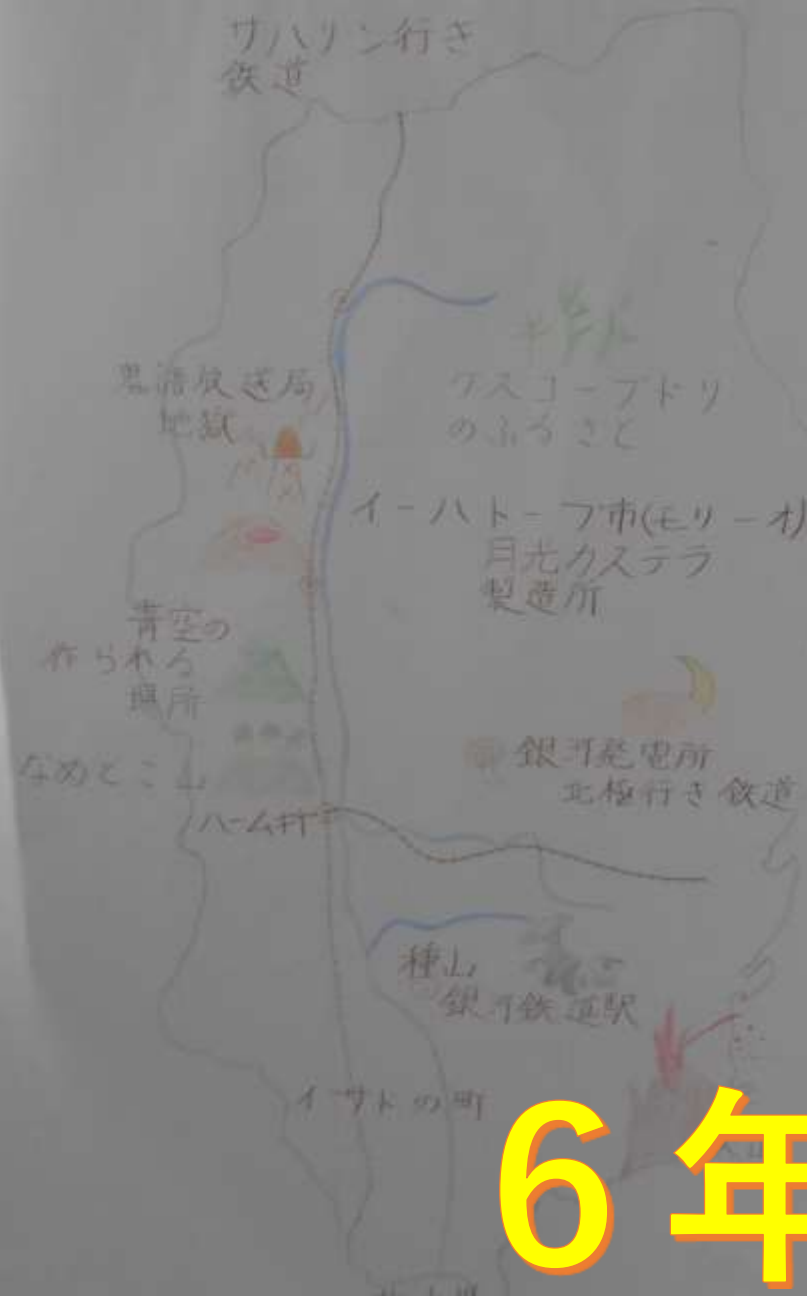 サハリン行き
鉄道
放送局
地獄
グスコーブドリ
のふるさと
イーハトーブ市(モリーオ)
月光カステラ
製造所
青空の
作られる
場所
銀河発電所
北極行き鉄道
なめとこ山
ハームキヤ
種山
銀河鉄道駅
イサドの町
6年